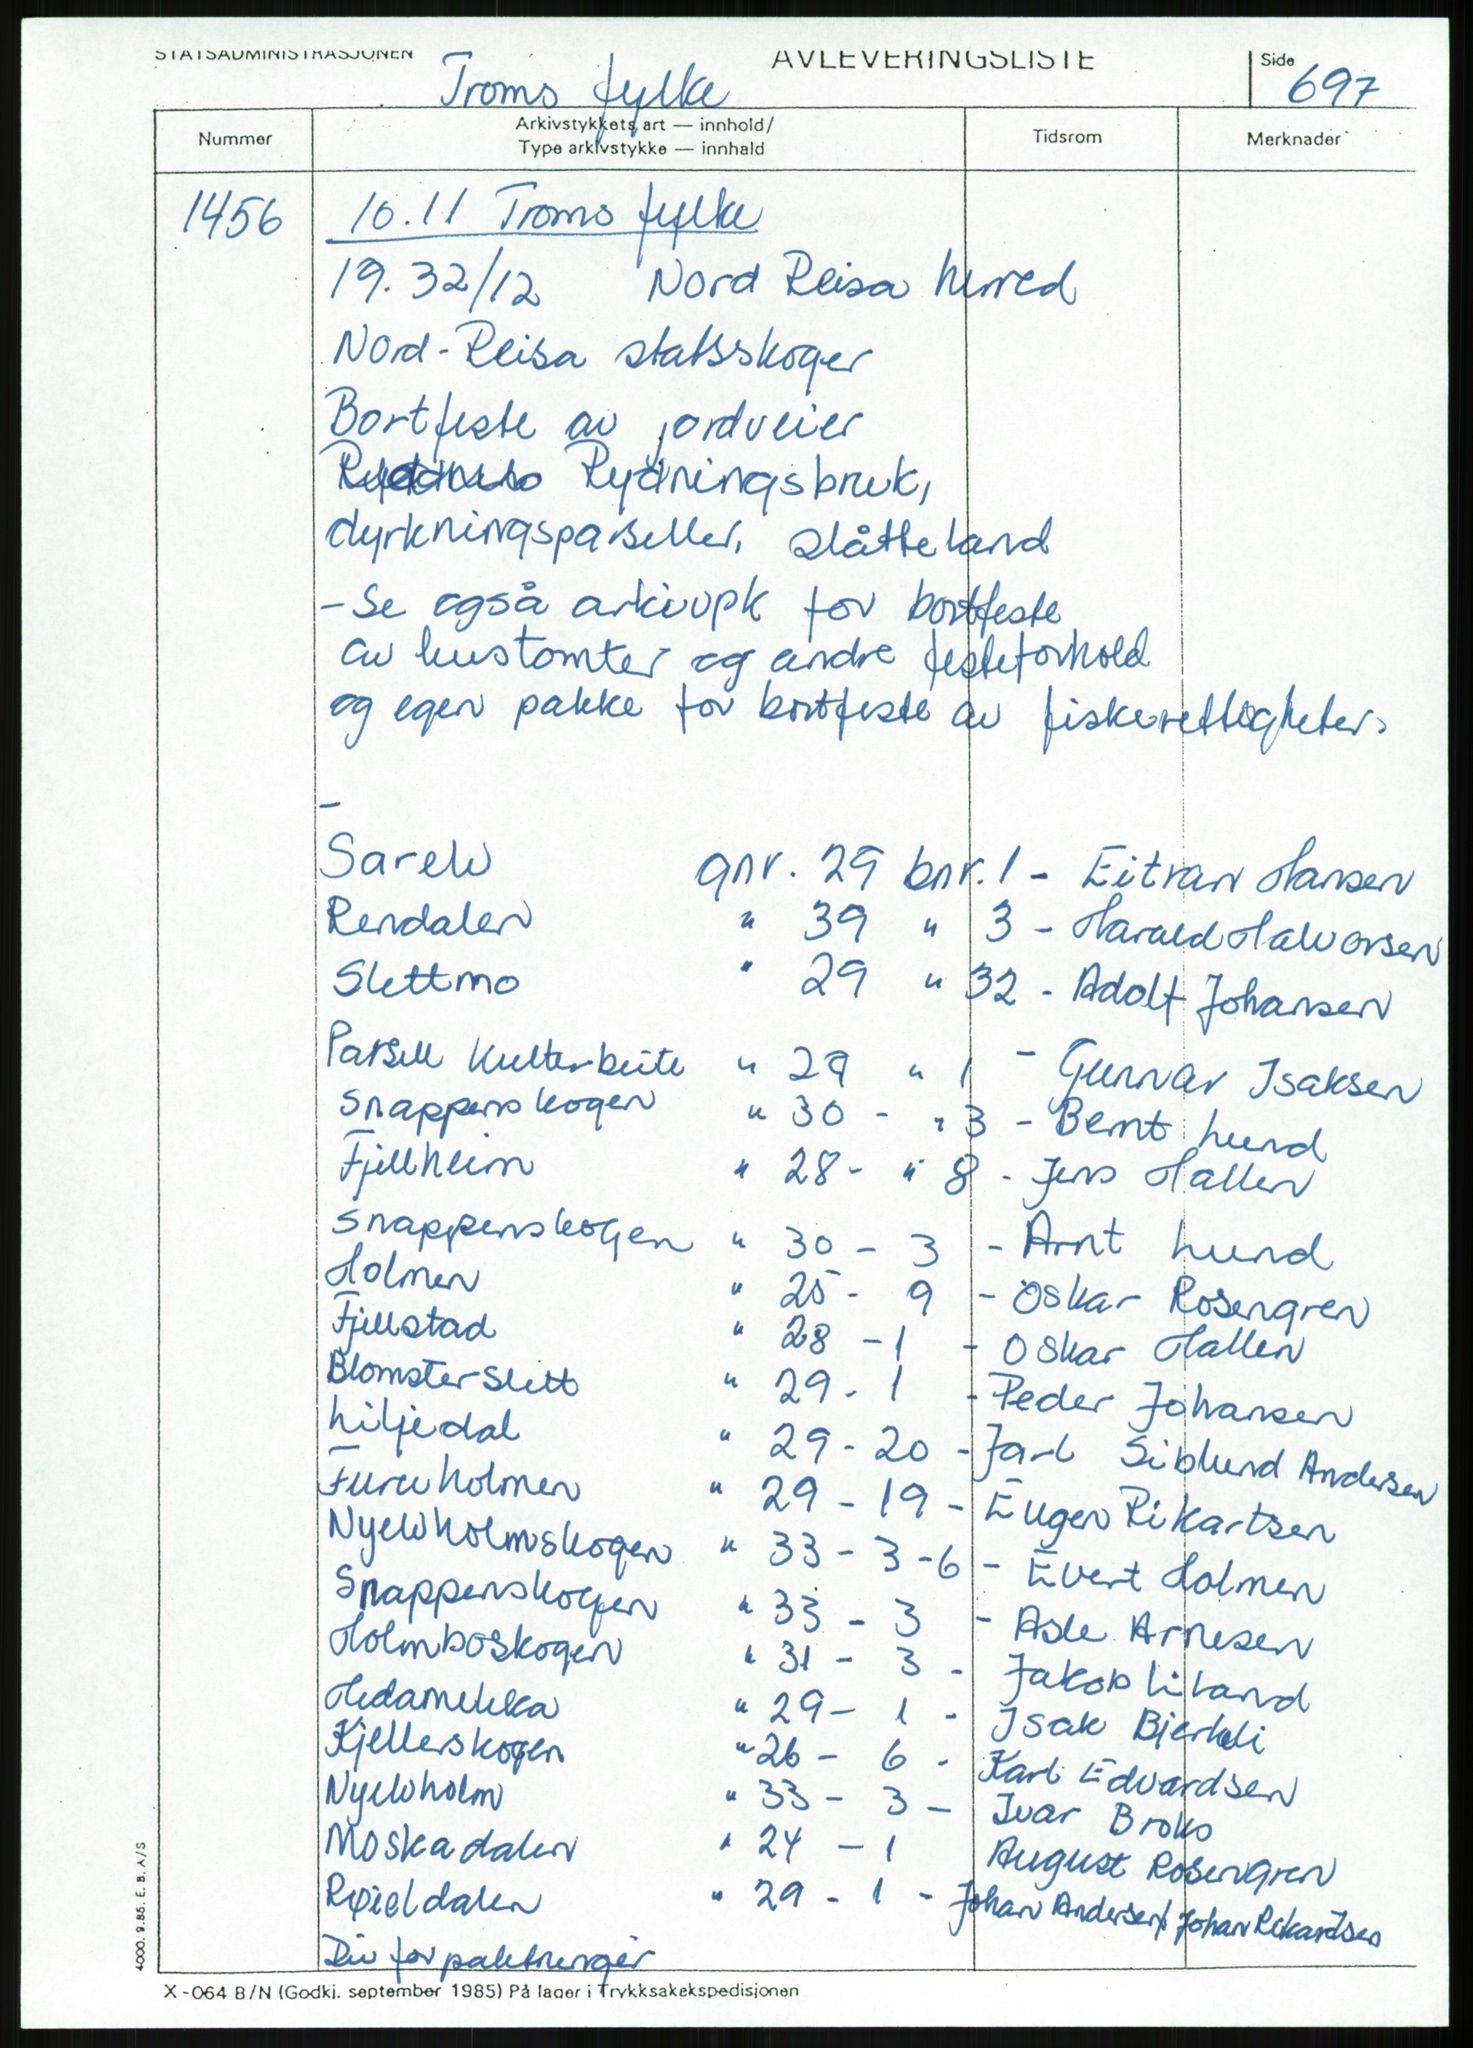 STATSADMINISTRASJONEN AVLEVERINGSLISTE Side
Troms fylke 697
Nummer Arkivstykkets art — innhold/ Tidsrom Merknader
Type arkivstykke — innhald
1456 10.11 Troms fylke
19.32/12 Nord Reisa herred
Nord-Reisa statsskoger
Bortfeste av jordveier
Rydningsbruk,
dyrkningsparseller, slåtteland
- Se også arkivpk for bortfeste
av hustomter og andre festeforhold
og egen pakke for bortfeste av fiskerettigheter.
-
Sarelv gnr. 29 bnr. 1 - Eitran Hansen
Rendalen " 39 " 3 - Harald Halvorsen
Slettmo " 29 " 32 - Adolf Johansen
Parsell Kulturbeite " 29 " 1 - Gunnar Isaksen
Snappenskogen " 30 - " 3 - Bernt Lund
Fjellheim " 28 - " 8 - Jens Hallen
Snappenskogen " 30 - 3 - Arnt Lund
Holmen " 25 - 9 - Oskar Rosengren
Fjellstad " 28 - 1 - Oskar Hallen
Blomsterslett " 29 - 1 - Peder Johansen
Liljedal " 29 - 20 - Jarl Siblund Andersen
Furuholmen " 29 - 19 - Eugen Rikartsen
Nyelvholmskogen " 33 - 3-6 - Evert Holmen
Snappenskogen " 33 - 3 - Asle Arnesen
Holmboskogen " 31 - 3 - Jakob Liland
Hedamekka " 29 - 1 - Isak Bjerkli
Kjellerskogen " 26 - 6 - Karl Edvardsen
Nyelvholm " 33 - 3 - Ivar Broks
Moskadalen " 24 - 1 August Rosengren
Røieldalen " 29 - 1 - Johan Andersen/ Johan Rikardsen
Div forpaktninger
4000. 9.85. E. B. A/S
X-064 B/N (Godkj. september 1985) På lager i Trykksakekspedisjonen